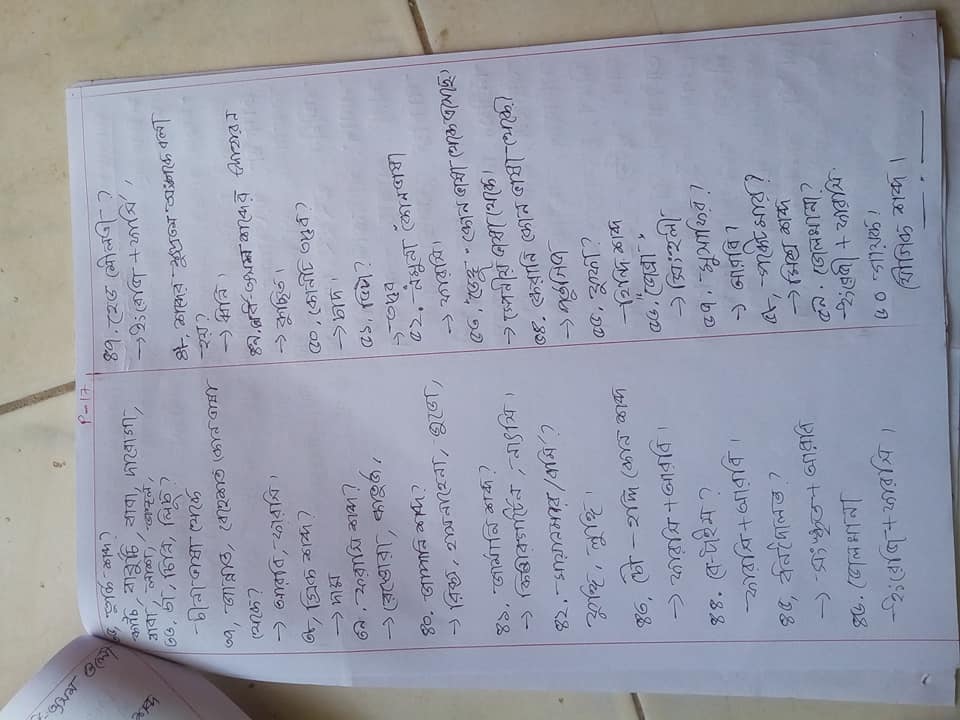 P-17
৩৫, তুর্কি শব্দ?
কাঁচি, বাবুর্চি, বাবা, দারোগা,
বাবা, লাশ,
৩৬, চা, চিনি, লিচু?
চীনা ভাষা থেকে
৩৭, জান্নাত, বেহেশত কোন ভাষা
থেকে?
→ আরবি, ফারসি।
৩৮, গ্রিক শব্দ?
→ দাম
৩৯. ফরাসি শব্দ?
→ রেস্তোরা, কার্তুজ,
৪০. জাপানি শব্দ?
→ রিক্সা, হাসনাহেনা, জুডো,
৪১. জার্মানি শব্দ?
→ কিন্ডারগার্টেন, নাৎসি।
৪২. মায়ানমার/বার্মি?
ফুঙ্গি, লুঙ্গি।
৪৩, চৌ-হদ্দি কোন শব্দ
→ ফারসি + আরবি।
৪৪. বে-টাইম?
ফারসি + আরবি।
৪৫,
→ সংস্কৃত + আরবি
৪৬. জেলখানা
ইংরেজি + ফারসি।
৪৭. হেড মৌলভী?
→ ইংরেজি + ফার্সি,
৪৮, শব্দের ক্ষুদ্রতম অংশকে বলা
হয়?
→ ধ্বনি।
৪৯. অর্ধ-তৎসম শব্দের উদাহারন
→ কুচ্ছিত।
৫০, কোনটি তদ্ভব?
→ চাঁদ।
৫১,
→ তদ্ভব
৫২. নমুনা কোন ভাষা
→ ফারসি।
৫৩, "ডেঙ্গু" কোন ভাষা থেকে এসেছে।
→ স্পেনীয় ভাষা থেকে।
৫৪. কেরানি কোন ভাষা থেকে।
→ পর্তুগিজ
৫৫,
হিন্দি শব্দ
৫৬.
→ সিংহলী
৫৭. মুসাফির?
→ আরবি?
৫৮, পকেটমার?
→ মিশ্র শব্দ
৫৯. জেলখানা?
ইংরেজী + ফারসি.
৬০ গায়ক।
যৌগিক শব্দ।